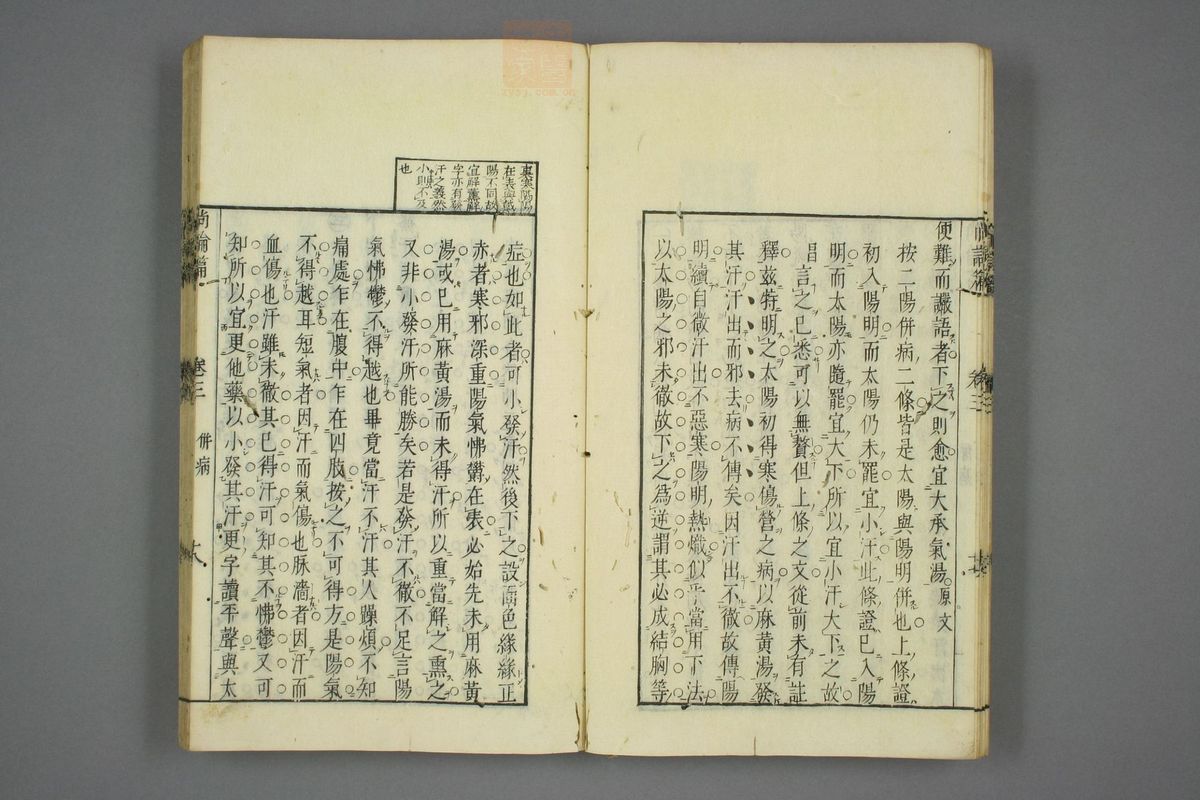 便難而讝語者下之則愈宜大承氣湯原文
按二陽併病二條皆是太陽與陽明併也上條證
初入陽明而太陽仍未罷宜小汗此條證已入陽
明而太陽亦隨罷宜大下所以宜小汗大下之故
昌言之已悉可以無贅但上條之文從前未有註
釋茲特明之太陽初得寒傷營之病以麻黃湯發
其汗汗出而邪去病不傳矣因汗出不徹故傳陽
明續自微汗出不惡寒陽明熱熾似乎當用下法
以太陽之邪未徹故下之為逆謂其必成結胸等
裏寒陽陽
在表與
陽不同故
宜釋薰釋
字亦有發
汗之義然
小則不及
也
症也如此者可小發汗然後下之設面色緣緣正
赤者寒邪深重陽氣怫鬱在表必始先未用麻黃
湯或已用麻黃湯而未得汗所以重當解之熏之
又非小發汗所能勝矣若是發汗不徹不足言陽
氣怫鬱不得越也畢竟當汗不汗其人躁煩不知
痛處乍在腹中乍在四肢按之不可得方是陽氣
不得越耳短氣者因汗而氣傷也脉濇者因汗而
血傷也汗雖未徹其已得汗可知其不怫鬱又可
知所以宜更他藥以小發其汗更字讀平聲與太
尚論篇 卷三 併病